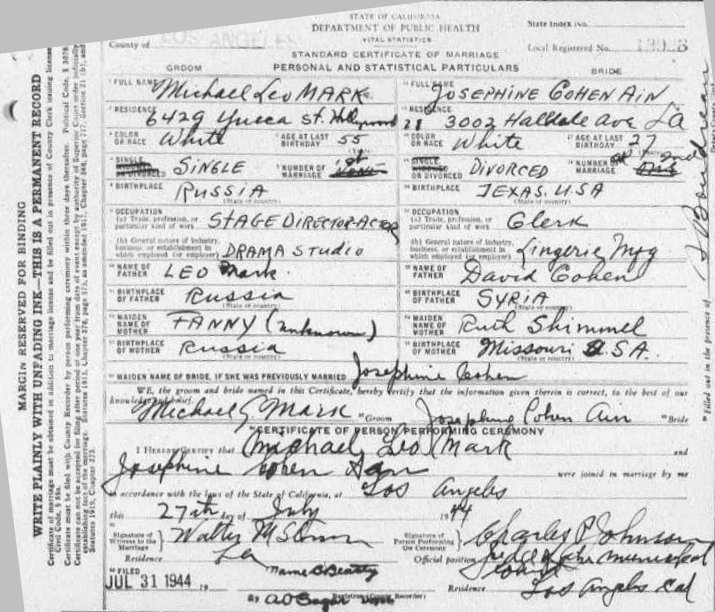 STATE OF CALIFORNIA
DEPARTMENT OF PUBLIC HEALTH
VITAL STATISTICS
State Index No.
County of LOS ANGELES
Local Registered No.
STANDARD CERTIFICATE OF MARRIAGE
PERSONAL AND STATISTICAL PARTICULARS
GROOM BRIDE
FULL NAME Michael Leo MARK FULL NAME JOSEPHINE COHEN AIN
RESIDENCE 6429 Yucca St. Hollywood 28 RESIDENCE 3002 Halldale Ave LA
COLOR OR RACE White AGE AT LAST BIRTHDAY 55 COLOR OR RACE White AGE AT LAST BIRTHDAY 27
SINGLE WIDOWED OR DIVORCED SINGLE NUMBER OF MARRIAGE 1st SINGLE WIDOWED OR DIVORCED DIVORCED NUMBER OF MARRIAGE 2nd
BIRTHPLACE RUSSIA BIRTHPLACE TEXAS, USA
(State or country) (State or country)
OCCUPATION OCCUPATION
(a) Trade, profession, or particular kind of work STAGE DIRECTOR-ACTOR (a) Trade, profession, or particular kind of work Clerk
(b) General nature of industry, business, or establishment in which employed (or employer) DRAMA STUDIO (b) General nature of industry, business, or establishment in which employed (or employer) Lingerie Mfg
NAME OF FATHER LEO Mark. NAME OF FATHER David Cohen
BIRTHPLACE OF FATHER Russia BIRTHPLACE OF FATHER SYRIA
(State or country) (State or country)
MAIDEN NAME OF MOTHER FANNY (unknown) MAIDEN NAME OF MOTHER Ruth Shimmel
BIRTHPLACE OF MOTHER Russia BIRTHPLACE OF MOTHER Missouri U.S.A.
(State or country) (State or country)
MAIDEN NAME OF BRIDE, IF SHE WAS PREVIOUSLY MARRIED Josephine Cohen
WE, the groom and bride named in this Certificate, hereby certify that the information given therein is correct, to the best of our
knowledge and belief.
Michael L Mark Groom Josephine Cohen Ain Bride
CERTIFICATE OF PERSON PERFORMING CEREMONY
I HEREBY CERTIFY that Michael Leo Mark and
Josephine Cohen Ain were joined in marriage by me
in accordance with the laws of the State of California, at Los Angeles
this 27th day of July 1944
Signature of Witness to the Marriage Walter M Signature of Person Performing the Ceremony Charles P Johnson
Residence LA Official position Judge of the Municipal Court
FILED Name B Beatty
JUL 31 1944 19 Residence Los Angeles Cal
By Deputy Registrar (County Recorder)
MARGIN RESERVED FOR BINDING
WRITE PLAINLY WITH UNFADING INK—THIS IS A PERMANENT RECORD
Filled out in the presence of